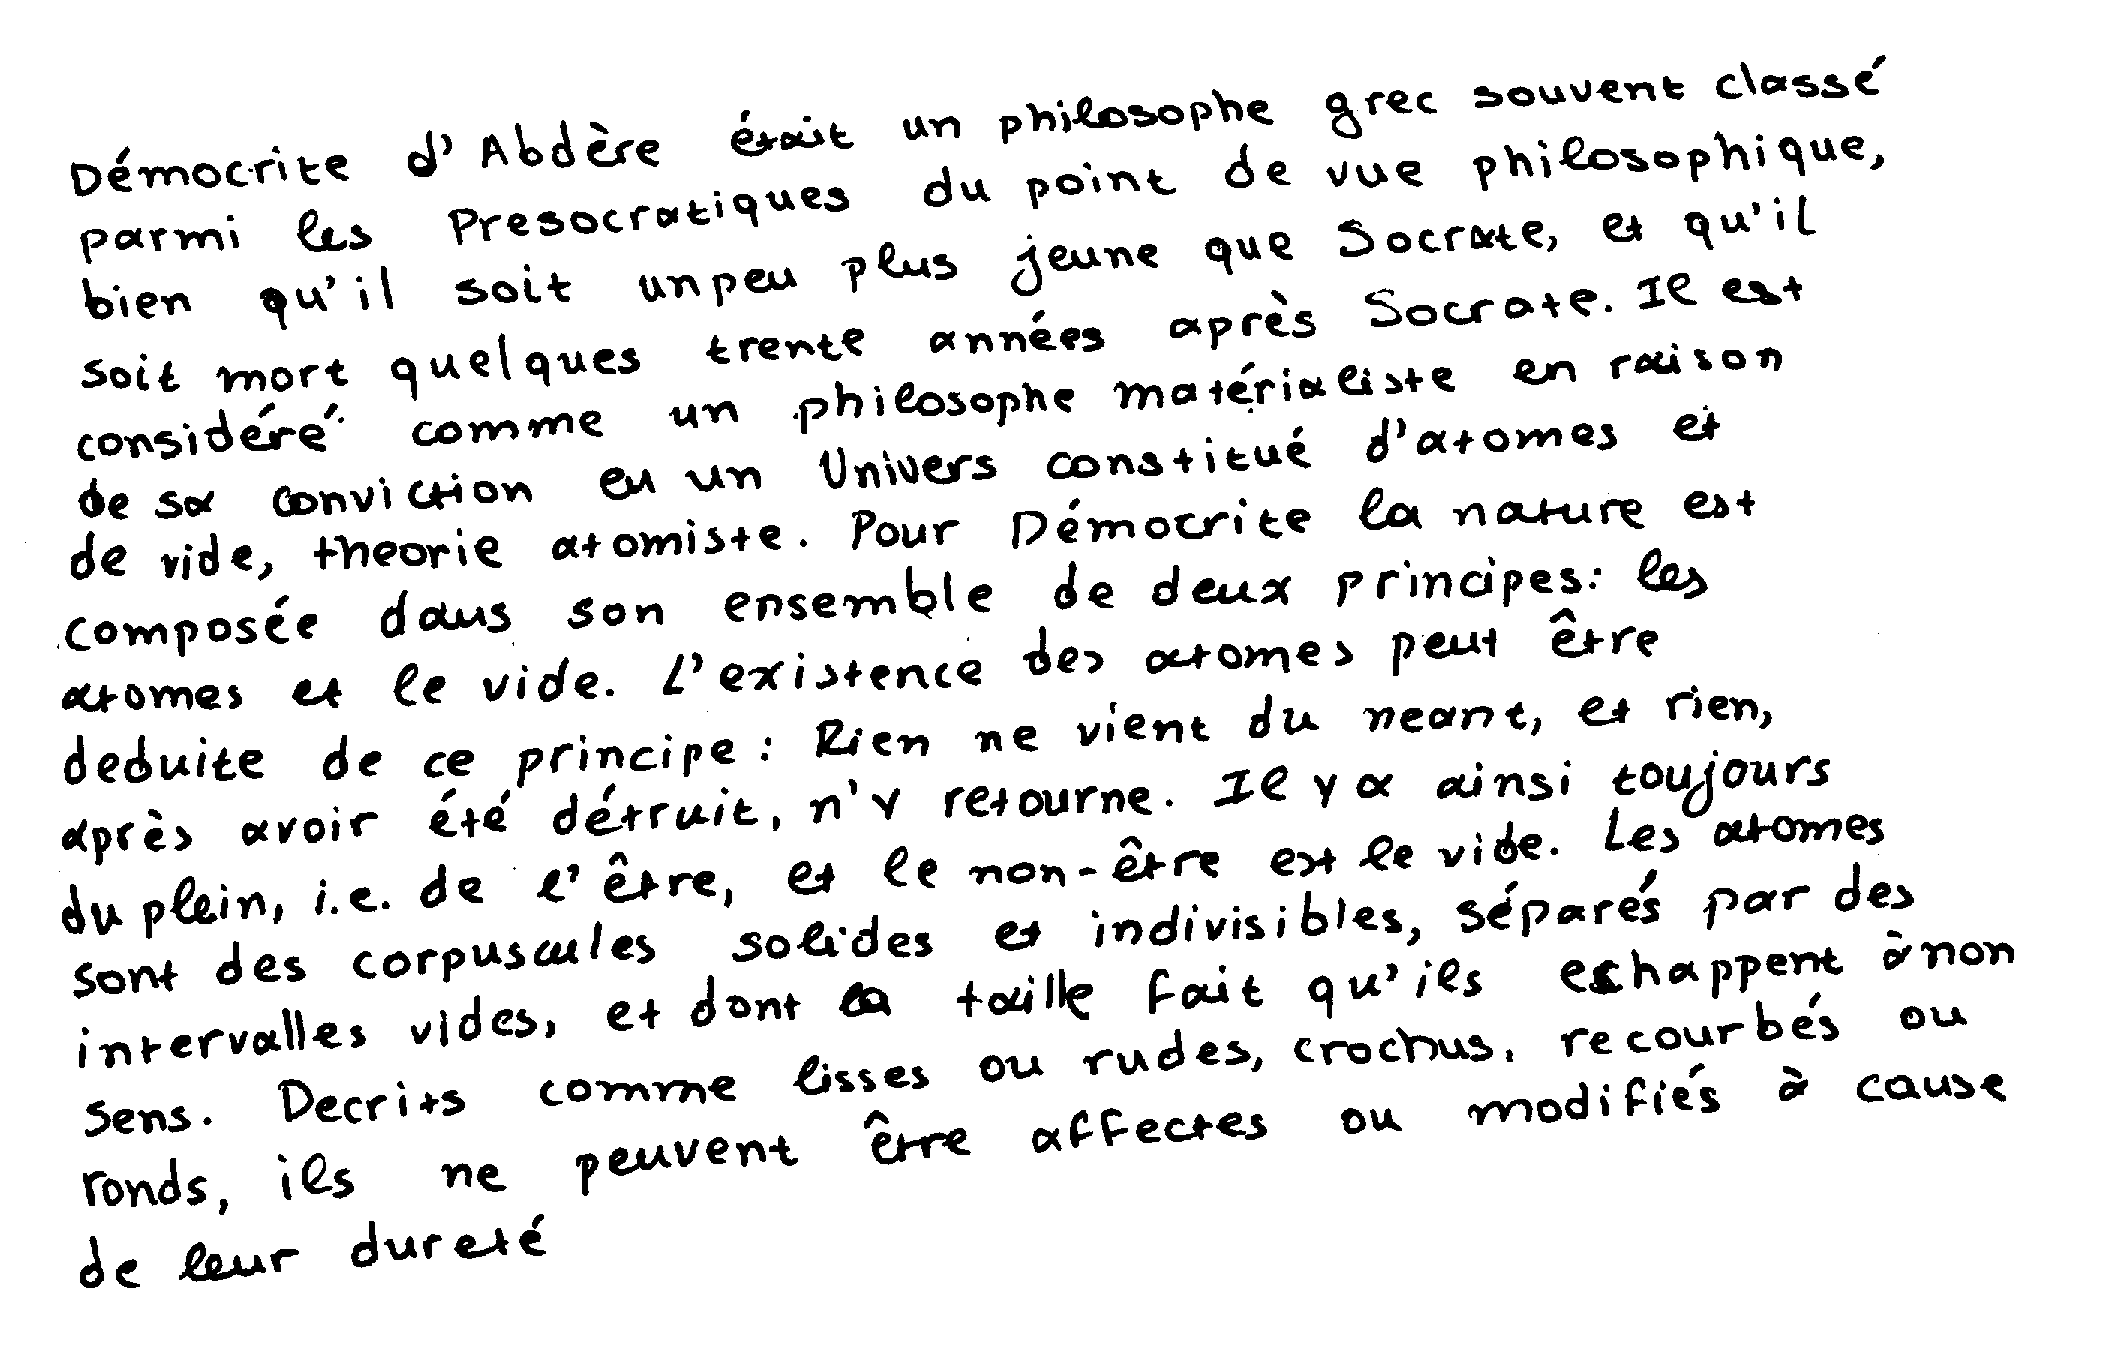 Démocrite d'Abdère était un philosophe grec souvent classé
parmi les Presocratiques du point de vue philosophique,
bien qu'il soit un peu plus jeune que Socrate, et qu'il
soit mort quelques trente années après Socrate. Il est
considéré comme un philosophe matérialiste en raison
de sa conviction en un Univers constitué d'atomes et
de vide, theorie atomiste. Pour Démocrite la nature est
composée dans son ensemble de deux principes: les
atomes et le vide. L'existence des atomes peut être
deduite de ce principe : Rien ne vient du neant, et rien,
après avoir été détruit, n'y retourne. Il y a ainsi toujours
du plein, i.e. de l'être, et le non-être est le vide. Les atomes
sont des corpuscules solides et indivisibles, séparés par des
intervalles vides, et dont la taille fait qu'ils echappent à non
sens. Decrits comme lisses ou rudes, crochus, recourbés ou
ronds, ils ne peuvent être affectes ou modifiés à cause
de leur dureté